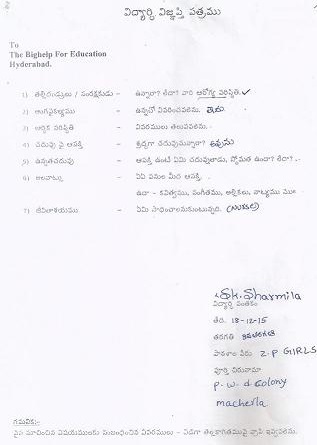 విద్యార్థి విజ్ఞప్తి పత్రము
To
The Bighelp For Education
Hyderabad.
1) తల్లిదండ్రులు / సంరక్షకుడు - ఉన్నారా? లేదా? వారి ఆరోగ్య పరిస్థితి. ✓
2) అంగవైకల్యము - ఉన్నచో వివరించవలెను.
3) ఆర్థిక పరిస్థితి - వివరములు తెలుపవలెను.
4) చదువు పై ఆసక్తి - శ్రద్ధగా చదువుచున్నారా? అవును
5) ఉన్నతచదువు - ఆసక్తి ఉంటే ఏమి చదువుతాడు, స్తోమత ఉందా? లేదా?
6) అలవాట్లు - ఏ ఏ పనుల మీద ఆసక్తి.
ఉదా - కవిత్వము, సంగీతము, అల్లికలు, నాట్యము
7) జీవితాశయము - ఏమి సాధించాలనుకుంటున్నది. (NURSE)
Sk. Sharmila
విద్యార్థి సంతకం
తేది. 18-12-15
తరగతి
పాఠశాల పేరు Z.P GIRLS
పూర్తి చిరునామా
P. W. d Colony
macherla
గమనిక:-
పైన సూచించిన విషయములకు సంబంధించిన వివరములు - విడిగా తెల్లకాగితముపై వ్రాసి ఇవ్వవలెను.